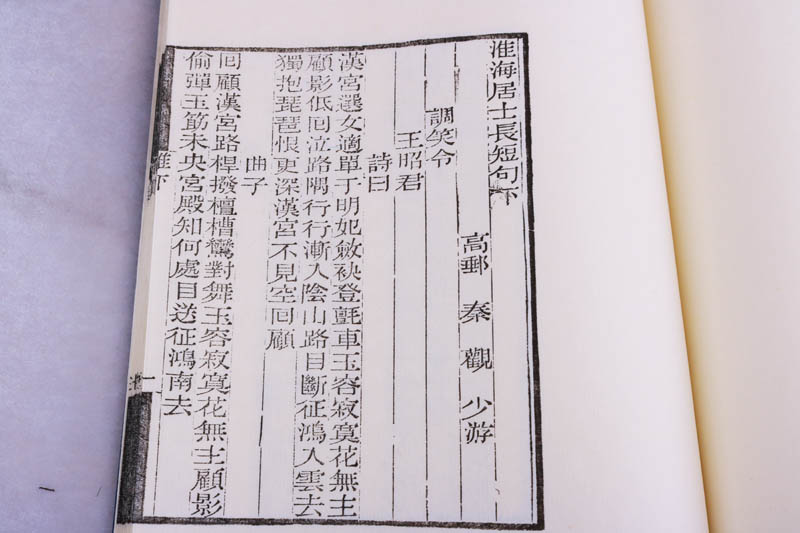 淮海居士長短句下
高郵 秦觀 少游
調笑令
王昭君
詩曰
漢宮選女適單于明妃斂袂登氈車玉容寂寞花無主
顧影低回泣路隅行行漸入陰山路目斷征鴻入雲去
獨抱琵琶恨更深漢宮不見空回顧
曲子
回顧漢宮路桿撥檀槽鸞對舞玉容寂寞花無主顧影
偷彈玉筯未央宮殿知何處目送征鴻南去
淮下 一